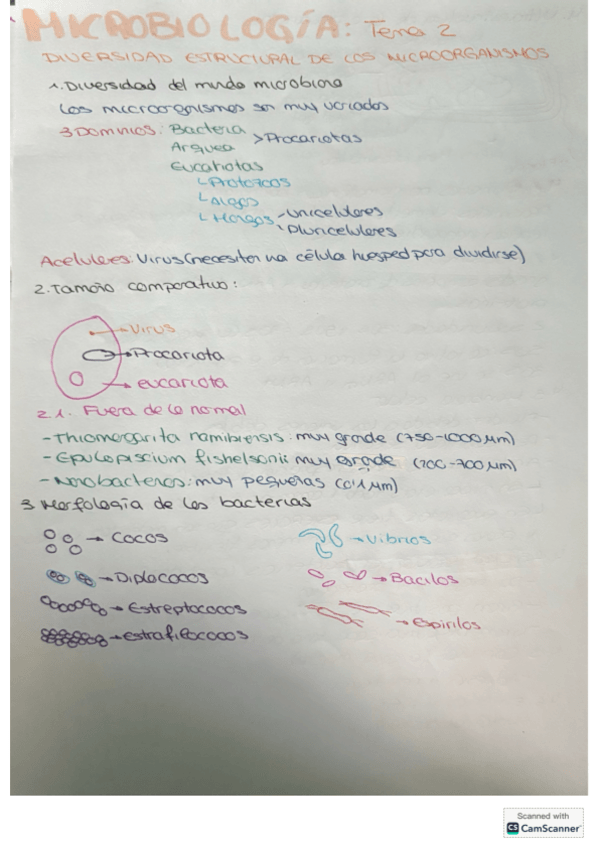 MICROBIOLOGÍA: Tema 2
DIVERSIDAD ESTRUCTURAL DE LOS MICROORGANISMOS
1. Diversidad del mundo microbiano
Los microorganismos son muy variados
3 Dominios: Bacteria
Arquea >Procariotas
Eucariotas
Protozoos
Algas
Hongos - unicelulares
Pluricelulares
Acelulares: Virus (necesitan una célula huesped para dividirse)
2. Tamaño comparativo:
Virus
Procariota
eucariota
2.1. Fuera de lo normal
- Thiomargarita namibiensis: muy grande (750-1000 μm)
- Epulopiscium fishelsonii muy grande (200-700 μm)
- Nanobacterias: muy pequeñas (0'1 μm)
3 Morfología de las bacterias
Cocos
Vibrios
Diplococos
Bacilos
Estreptococos
Espirilos
estrafilococos
Scanned with
CS CamScanner